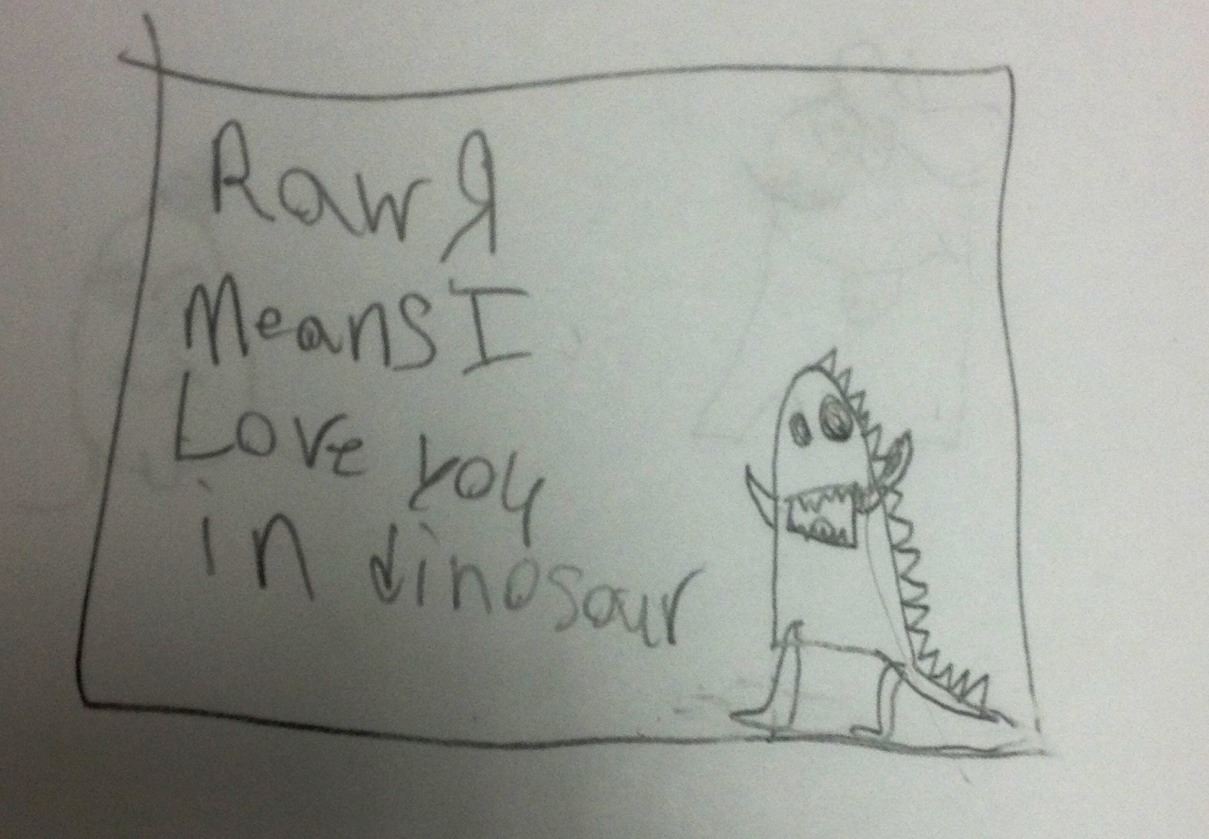 RawЯ
Means I
Love you
in dinosour